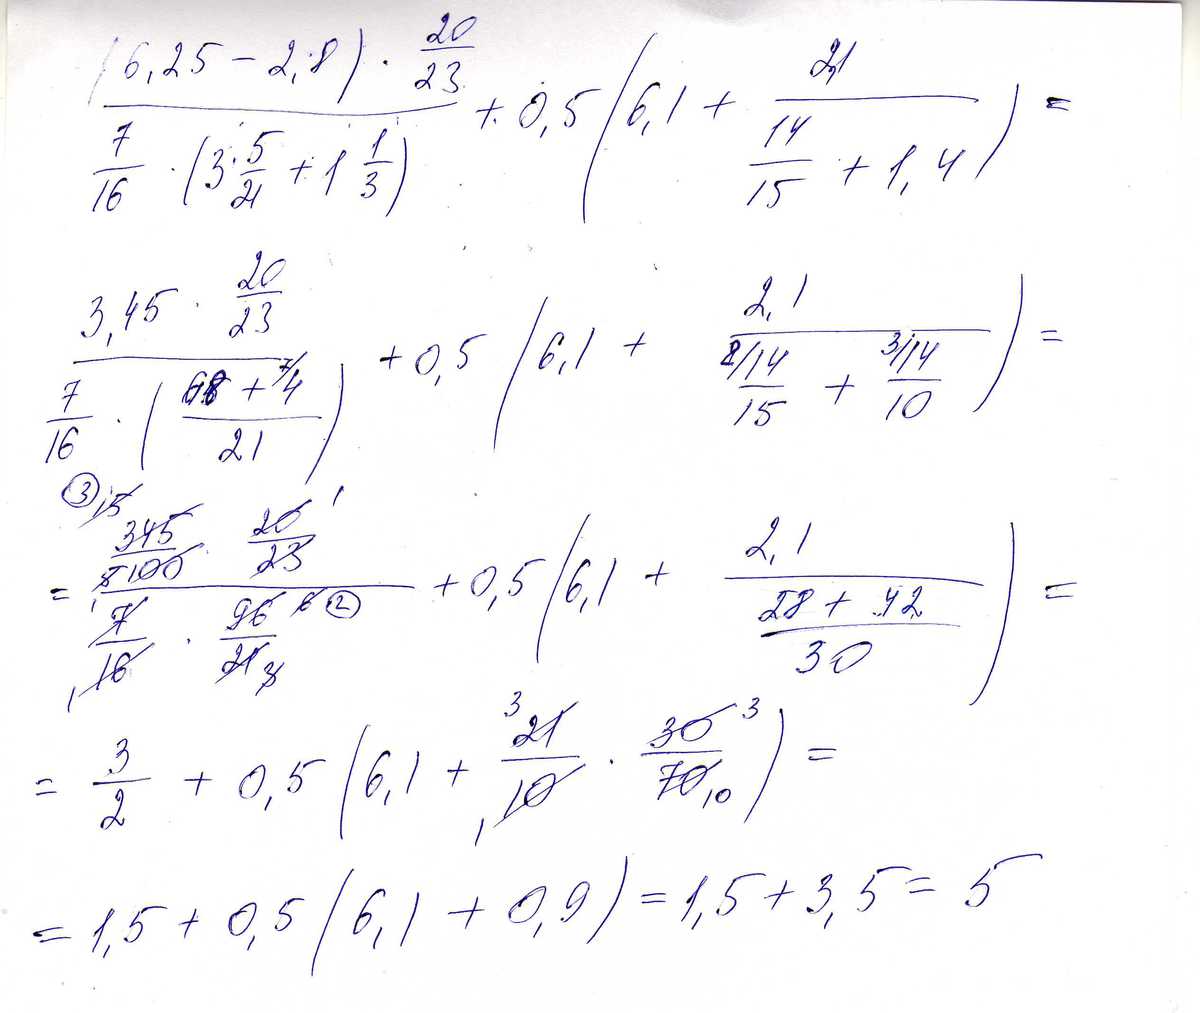 ((6,25 - 2,8) · 20/23) / (7/16 · (3 5/21 + 1 1/3)) + 0,5 (6,1 + 2,1 / (14/15 + 1,4)) =
(3,45 · 20/23) / (7/16 · ((68 + 7/4) / 21)) + 0,5 (6,1 + 2,1 / (2/14/15 + 3/14/10)) =
= (345/100 · 20/23) / (7/16 · 96/21) + 0,5 (6,1 + 2,1 / ((28 + 42) / 30)) =
= 3/2 + 0,5 (6,1 + 21/10 · 30/70) =
= 1,5 + 0,5 (6,1 + 0,9) = 1,5 + 3,5 = 5